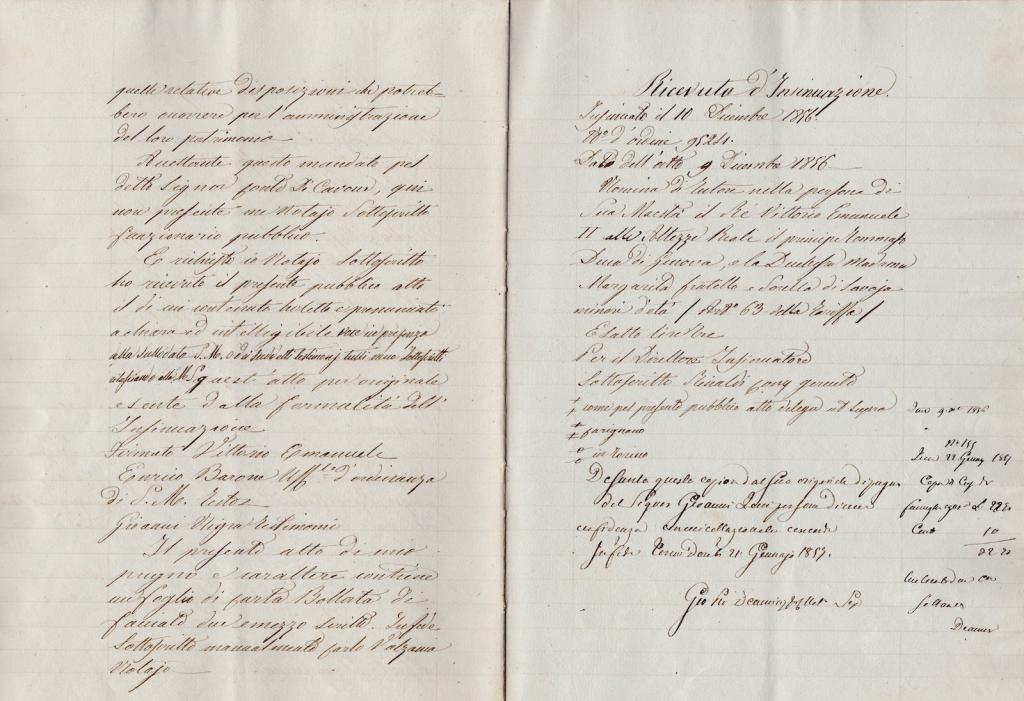 quelle relative disposizioni che potreb-
bero occorrere per l'amministrazione
del loro patrimonio.
Accettante questo mandato pel
detto Signor Conte Di Cavour, qui
non presente me Notajo Sottoscritto
funzionario pubblico.
E richiesto io Notajo Sottoscritto
ho ricevuto il presente pubblico atto
il di cui contenuto ho letto e pronunciato
a chiara ed intelligibile voce in presenza
alla sullodata S. M. e dei suddetti testimonj tutti meco sottoscritti
quest'atto per originale
esente dalla formalità dell'
Insinuazione
Firmato Vittorio Emanuele
Enrico Barone Uff. d'ordinanza
di S. M. testes
Giovanni Nigra testimonio
Il presente atto di mio
pugno e carattere contiene
un foglio di carta Bollata di
facciate due e mezzo scritte. In fede
Sottoscritto manualmente Carlo Valzania
Notajo
Ricevuta d'Insinuazione.
Insinuato il 10 Dicembre 1856.
N° d'ordine 9524.
Data dell'atto 9 Dicembre 1856
Nomina di tutore nella persona di
Sua Maestà il Ré Vittorio Emanuele
II alle Altezze Reali il principe Tommaso
Duca di Genova, e la Duchessa Madama
Margarita fratello e Sorella di Savoja
minori d'età / Art° 63 della tariffa /
Esatto lire tre
Per il Direttore Insinuatore
Sottoscritto Rinaldi Cong gerente
come pel presente pubblico atto delega ut supra
Carignano
in Torino
Desunta questa copia dal suo originale di pugno
del Signor Giovanni persona di mia
confidenza con cui collazionata concorda
In fede Torino dodeti 21. Gennajo 1857.
N° 155
22 1857
Copia
L. 22 20
10
22 20